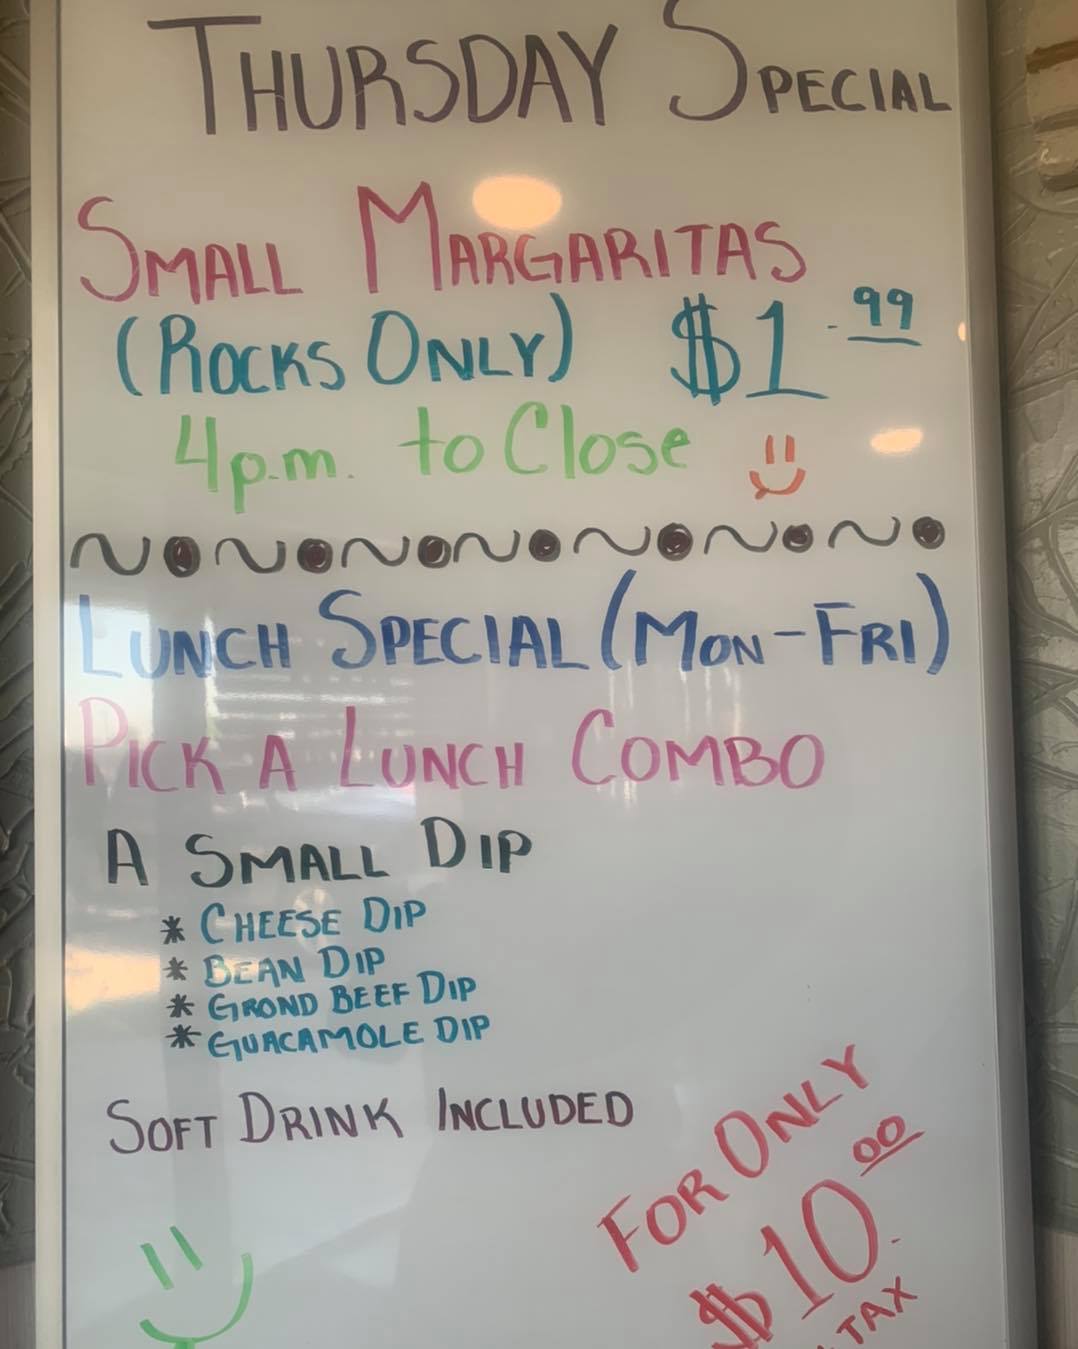 THURSDAY SPECIAL
SMALL MARGARITAS
(ROCKS ONLY) $1.99
4p.m. to Close
LUNCH SPECIAL (MON-FRI)
PICK A LUNCH COMBO
A SMALL DIP
* CHEESE DIP
* BEAN DIP
* GROND BEEF DIP
* GUACAMOLE DIP
SOFT DRINK INCLUDED
FOR ONLY
$10.00
TAX